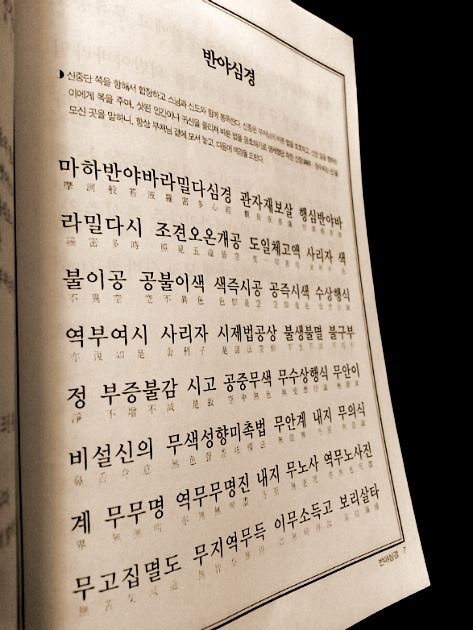 반야심경
신중단 쪽을 향해서 합장하고 스님과 신도와 함께 봉독한다. 신중은
이에게 복을 주며, 삿된 인간이나 귀신을 물리쳐 바른 법을
모신 곳을 말하니, 항상 부처님 곁에 모셔 놓고, 다음에 예경을 드린다.
마하반야바라밀다심경 관자재보살 행심반야바
摩訶般若波羅蜜多心經 觀自在菩薩 行深般若波
라밀다시 조견오온개공 도일체고액 사리자 색
羅蜜多時 照見五蘊皆空 度一切苦厄 舍利子 色
불이공 공불이색 색즉시공 공즉시색 수상행식
不異空 空不異色 色卽是空 空卽是色 受想行識
역부여시 사리자 시제법공상 불생불멸 불구부
亦復如是 舍利子 是諸法空相 不生不滅 不垢不
정 부증불감 시고 공중무색 무수상행식 무안이
淨 不增不減 是故 空中無色 無受想行識 無眼耳
비설신의 무색성향미촉법 무안계 내지 무의식
鼻舌身意 無色聲香味觸法 無眼界 乃至 無意識
계 무무명 역무무명진 내지 무노사 역무노사진
界 無無明 亦無無明盡 乃至 無老死 亦無老死盡
무고집멸도 무지역무득 이무소득고 보리살타
無苦集滅道 無智亦無得 以無所得故 菩提薩埵
반야심경 7